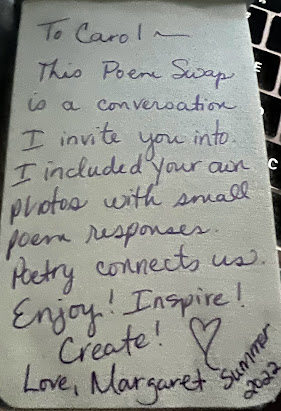 To Carol ~
This Poem Swap
is a conversation
I invite you into.
I included your own
photos with small
poem responses.
Poetry connects us.
Enjoy! Inspire!
Create! ♡
Love, Margaret
Summer
2022